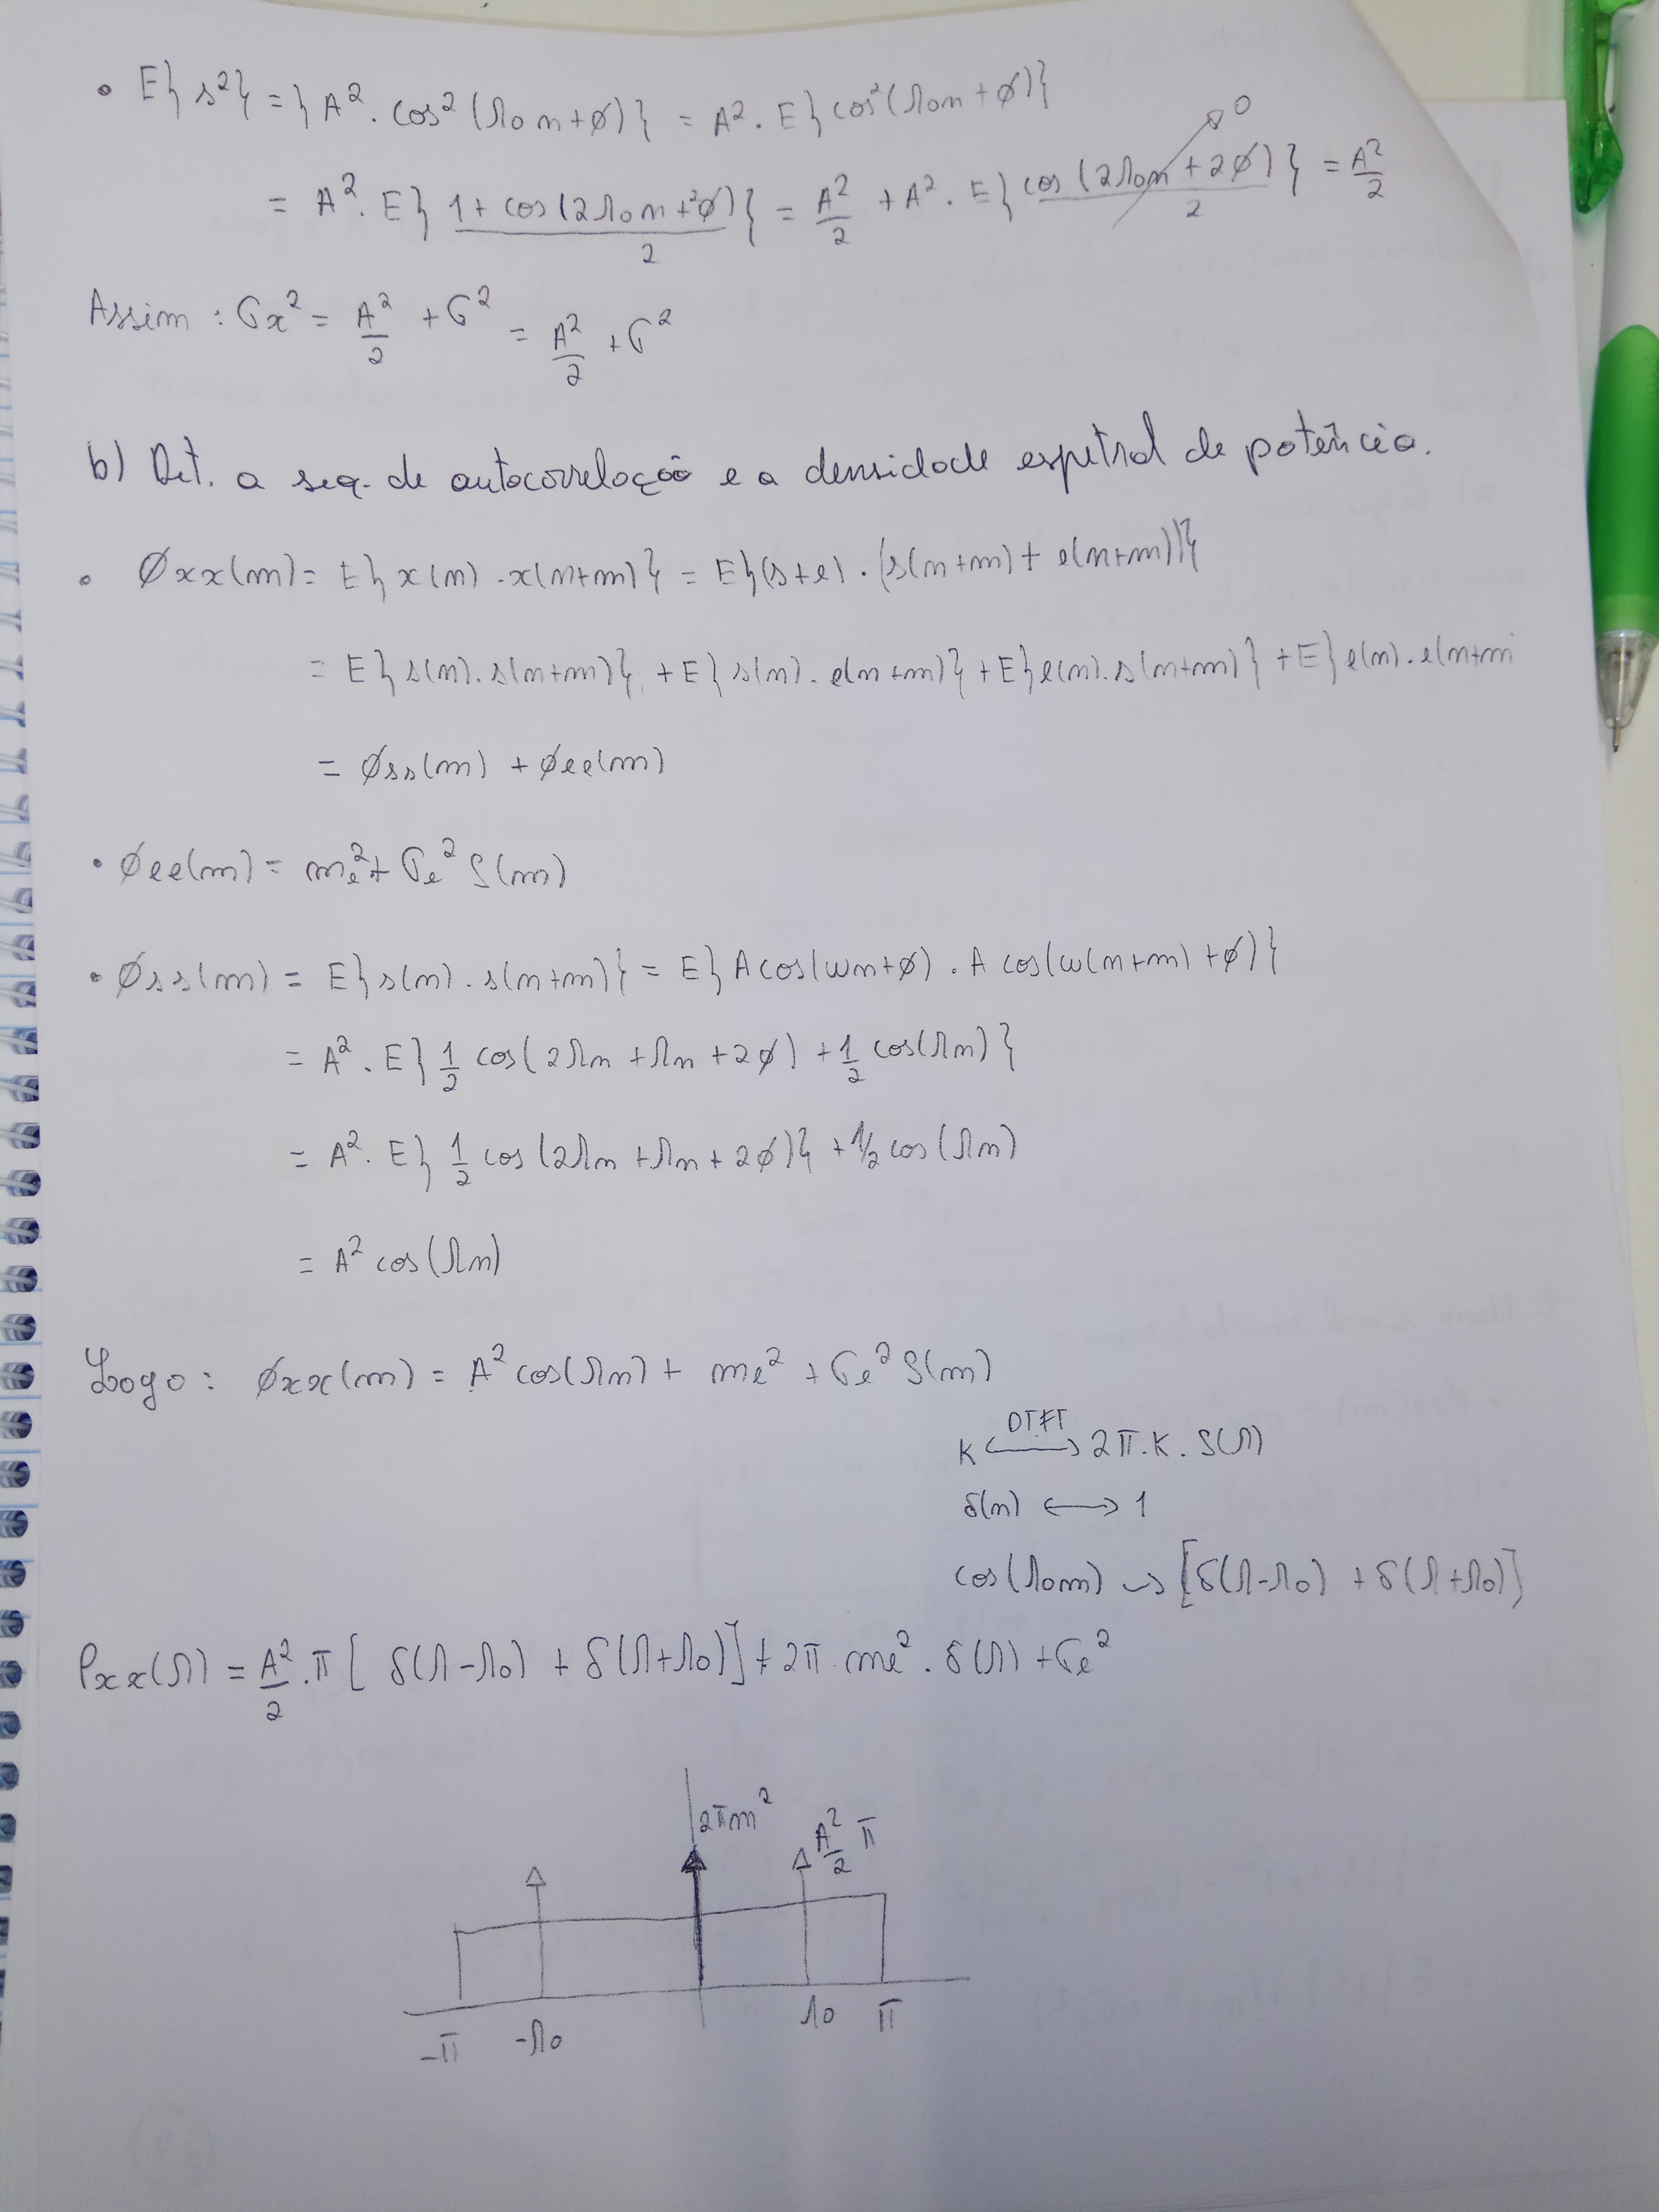 • E{s²} = {A² . cos²(Ω0n+ø)} = A² . E{cos²(Ω0n+ø)}
= A² . E{(1 + cos(2Ω0n+2ø))/2} = A²/2 + A² . E{cos(2Ω0n+2ø)/2} → 0 = A²/2
Assim : σx² = A²/2 + σ² = A²/2 + σ²
b) Det. a seq. de autocorrelação e a densidade espetral de potência.
• øxx(m) = E{x(n) . x(n+m)} = E{(s+e) . (s(n+m) + e(n+m))}
= E{s(n).s(n+m)} + E{s(n).e(n+m)} + E{e(n).s(n+m)} + E{e(n).e(n+m
= øss(m) + øee(m)
• øee(m) = me² + σe² δ(m)
• øss(m) = E{s(n) . s(n+m)} = E{A cos(ωn+ø) . A cos(ω(n+m) + ø)}
= A² . E{1/2 cos(2Ωn + Ωm + 2ø) + 1/2 cos(Ωm)}
= A² . E{1/2 cos(2Ωn + Ωm + 2ø)} + 1/2 cos(Ωm)
= A² cos(Ωm)
Logo : øxx(m) = A² cos(Ωm) + me² + σe² δ(m)
K ←DTFT→ 2π.K.δ(Ω)
δ(n) ↔ 1
cos(Ω0m) → [δ(Ω-Ω0) + δ(Ω+Ω0)]
Pxx(Ω) = A²/2 . π [δ(Ω-Ω0) + δ(Ω+Ω0)] + 2π me² . δ(Ω) + σe²
2πm²
A²/2 π
-π -Ω0 Ω0 π